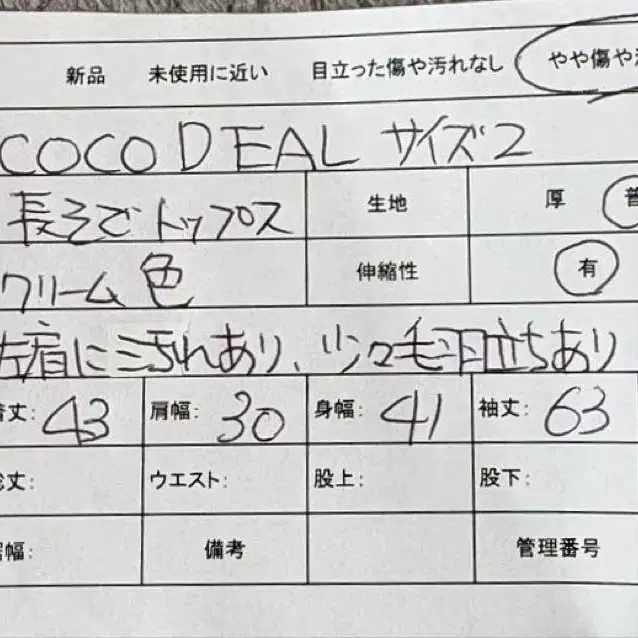 新品 未使用に近い 目立った傷や汚れなし やや傷や
COCO DEAL サイズ2
長そでトップス 生地 厚 普
クリーム色 伸縮性 有
左肩に汚れあり、少々毛羽立ちあり
着丈: 43 肩幅: 30 身幅: 41 袖丈: 63
総丈: ウエスト: 股上: 股下:
裾幅: 備考 管理番号